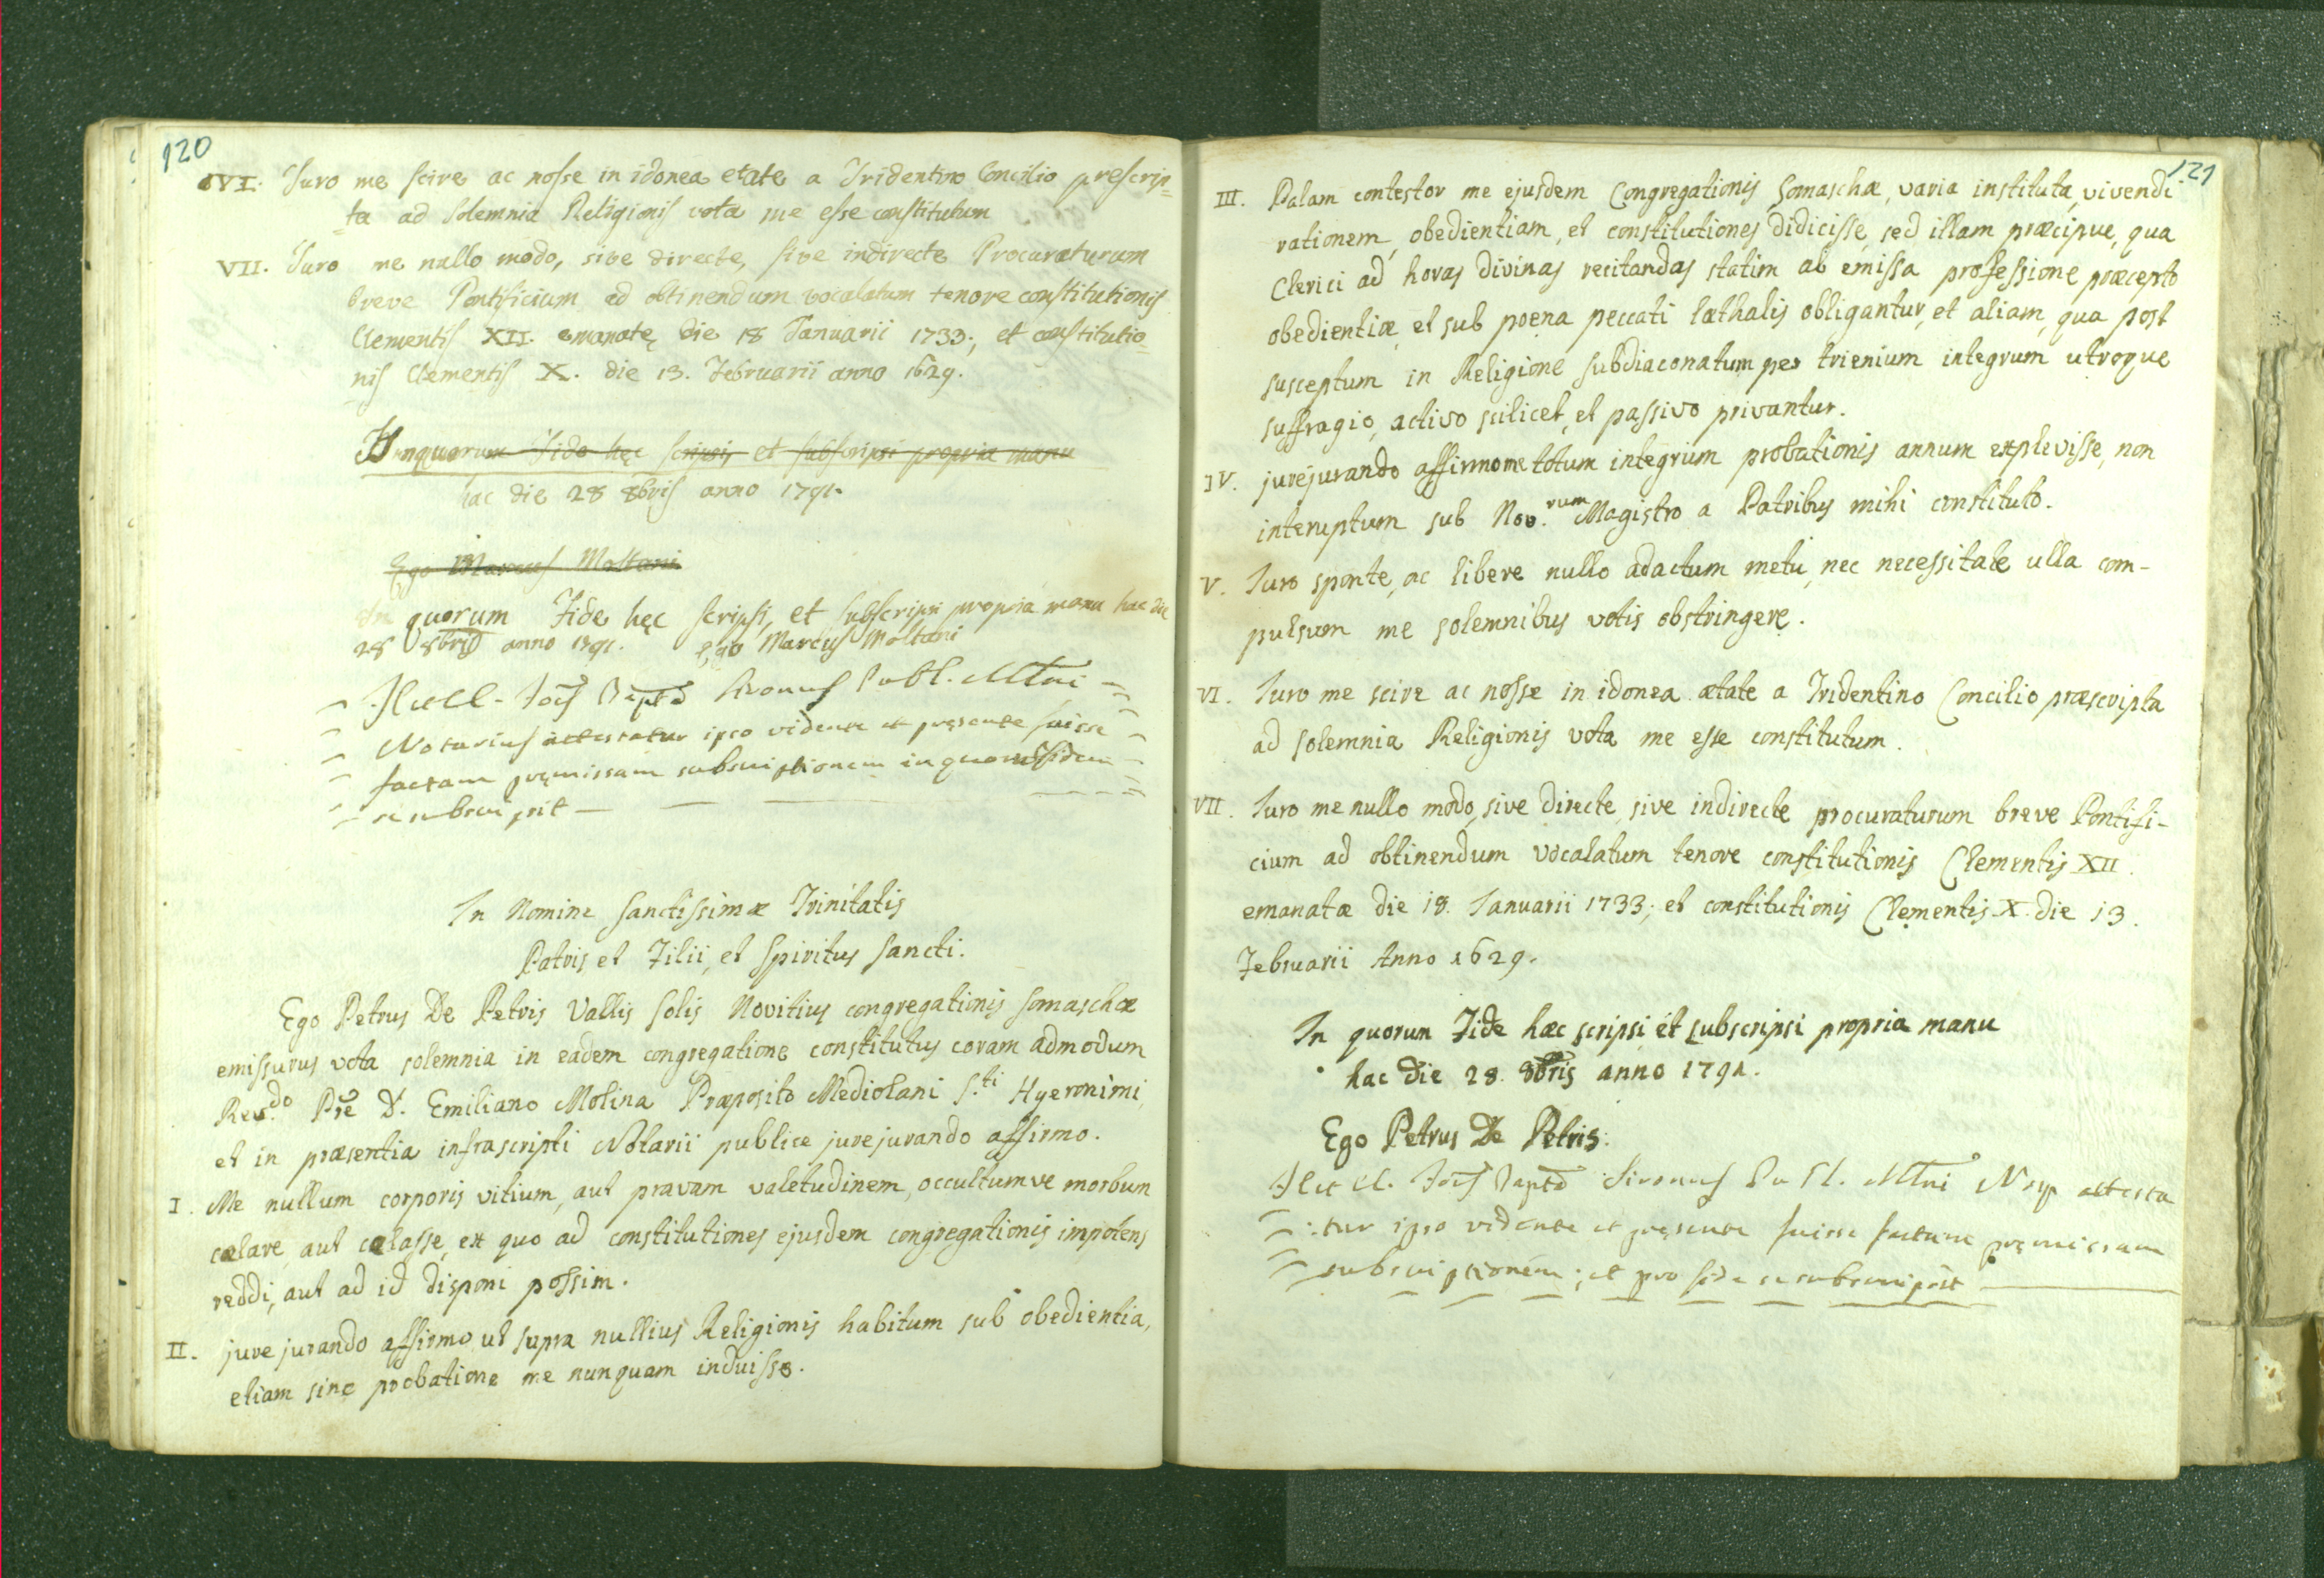 120
VI. Juro me scire ac nosse in idonea etate a Tridentino Concilio prescrip=
ta ad solemnia Religionis vota me esse constitutum
VII. Juro me nullo modo, sive directe, sive indirecte Procuraturum
breve Pontificium ad obtinendum vocalatum tenore constitutionis
Clementis XII. emanatę die 18 Januarii 1733., et constitutio=
nis Clementis X. die 13. Februarii anno 1629.
In quorum Fide hęc scripsi et subscripsi propria manu
hac die 28 8bris anno 1791.
Ego Marcus Moltani
In quorum Fide hęc scripsi, et subscripsi propria manu hac die
28 8bris anno 1791. Ego Marcus Moltani
Publ. Mlni
Notarius attestatur ipso vidente et pręsente fuisse
factam pręmissam subscriptionem in quorum fidem
se subscripsit
In Nomine Sanctissimæ Trinitatis
Patris et Filii, et Spiritus Sancti.
Ego Petrus De Petris Vallis Solis Novitius congregationis Somaschæ
emissurus vota solemnia in eadem congregatione constitutus coram admodum
Rev.do Pre D. Emiliano Molina Præposito Mediolani S.ti Hyeronimi,
et in præsentia infrascripti Notarii publice jurejurando affirmo.
I. Me nullum corporis vitium, aut pravam valetudinem, occultumve morbum
cælare, aut cælasse, ex quo ad constitutiones ejusdem congregationis impotens
reddi, aut ad id disponi possim.
II. jurejurando affirmo ut supra nullius Religionis habitum sub obedientia,
etiam sine probatione me nunquam induisse.
121
III. Palam contestor me ejusdem Congregationis Somaschæ, varia instituta, vivendi
rationem, obedientiam, et constitutiones didicisse, sed illam præcipue, qua
Clerici ad horas divinas recitandas statim ab emissa professione præcepto
obedientiæ, et sub poena peccati læthalis obligantur, et aliam, qua post
susceptum in Religione subdiaconatum per trienium integrum utroque
suffragio, activo scilicet, et passivo privantur.
IV. jurejurando affirmo me totum integrum probationis annum explevisse, non
interuptum sub Nov.rum Magistro a Patribus mihi constituto.
V. Iuro sponte, ac libere nullo adactum metu, nec necessitate ulla com-
pulsum me solemnibus votis obstringere.
VI. Iuro me scire ac nosse in idonea ætate a Tridentino Concilio præscripta
ad solemnia Religionis vota me esse constitutum.
VII. Iuro me nullo modo, sive directe, sive indirecte procuraturum breve Pontifi-
cium ad obtinendum vocalatum tenore constitutionis Clementis XII.
emanatæ die 18. Ianuarii 1733; et constitutionis Clementis X. die 13.
Februarii Anno 1629.
In quorum Fide hæc scripsi et subscripsi propria manu
hac die 28. 8bris anno 1791.
Ego Petrus De Petris.
Mlni attesta
:tur ipso vidente et pręsente fuisse factam pręmissam
subscriptionem; et pro fide se subscripsit